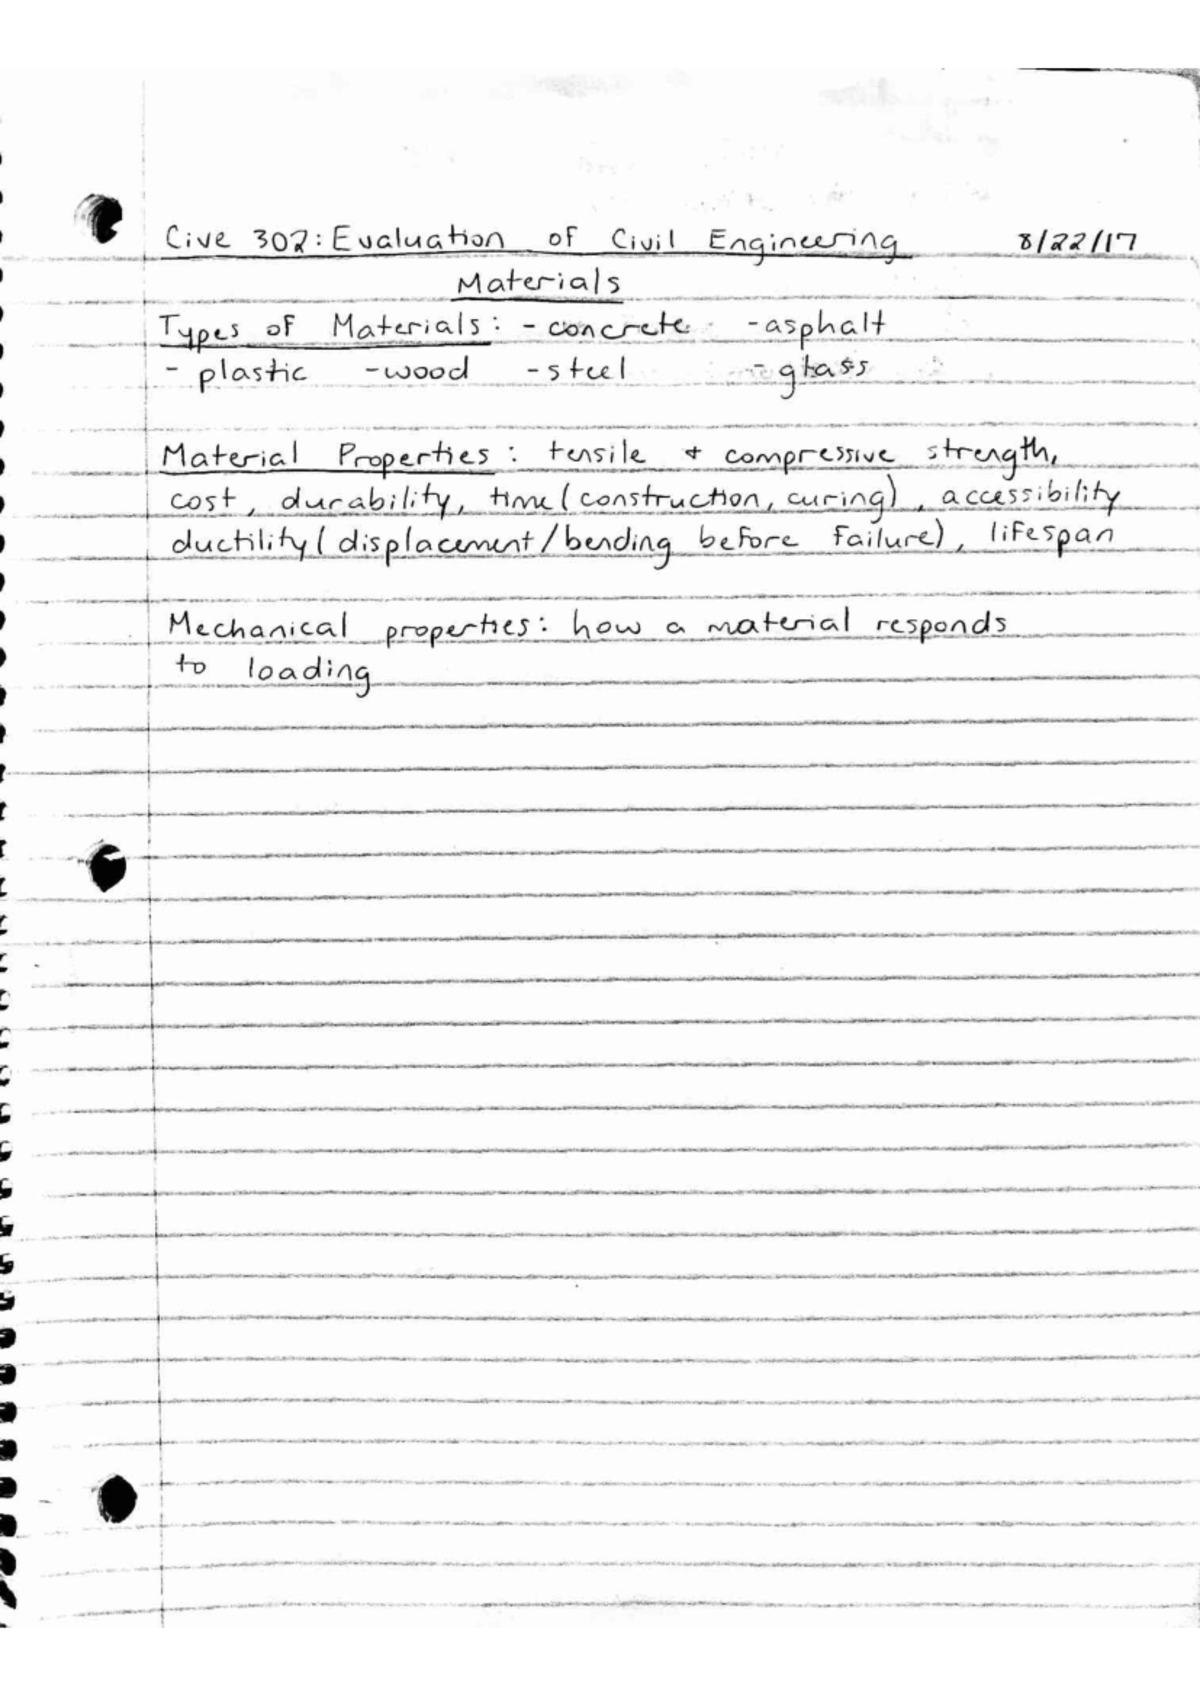 Cive 302: Evaluation of Civil Engineering 8/22/17
Materials
Types of Materials: - concrete - asphalt
- plastic - wood - steel - glass
Material Properties: tensile + compressive strength,
cost, durability, time (construction, curing), accessibility
ductility (displacement/bending before failure), lifespan
Mechanical properties: how a material responds
to loading